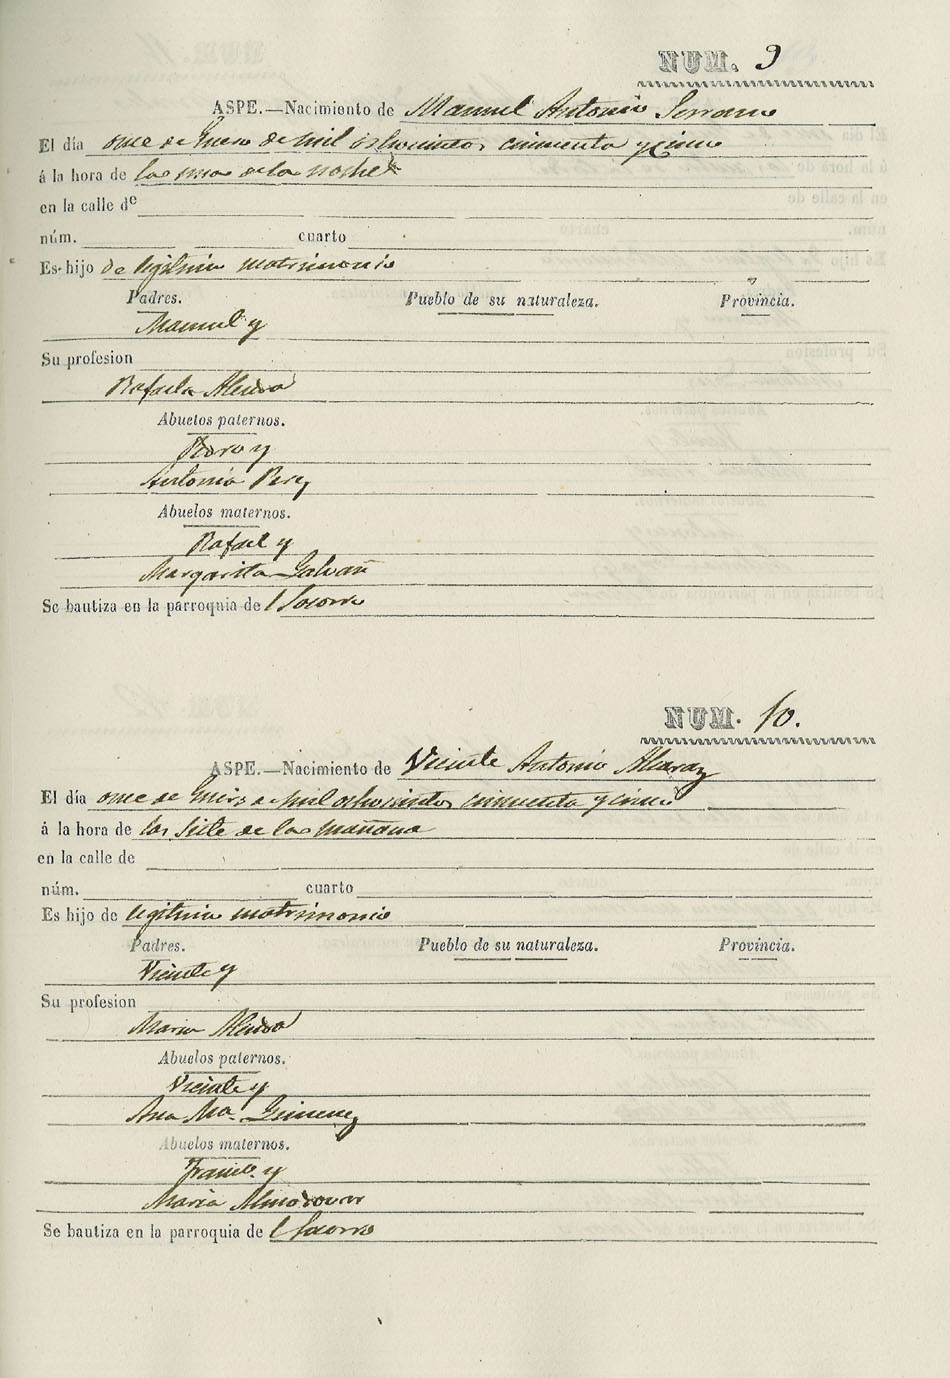 NUM. 9
ASPE.—Nacimiento de Manuel Antonio Serrano
El día once de Enero de mil ochocientos cincuenta y cinco
á la hora de las once de la noche
en la calle de
núm. cuarto
Es hijo de legitimo matrimonio
Padres. Pueblo de su naturaleza. Provincia.
Manuel y
Su profesion
Rafaela Alenda
Abuelos paternos.
Pedro y
Antonia Perez
Abuelos maternos.
Rafael y
Margarita Galvañ
Se bautiza en la parroquia del Socorro
NUM. 10.
ASPE.—Nacimiento de Vicente Antonio Alcaraz
El día once de Enero de mil ochocientos cincuenta y cinco
á la hora de las siete de la mañana
en la calle de
núm. cuarto
Es hijo de legitimo matrimonio
Padres. Pueblo de su naturaleza. Provincia.
Vicente y
Su profesion
Maria Alenda
Abuelos paternos.
Vicente y
Ana Ma. Gimenez
Abuelos maternos.
Franco. y
Maria Almodovar
Se bautiza en la parroquia del Socorro